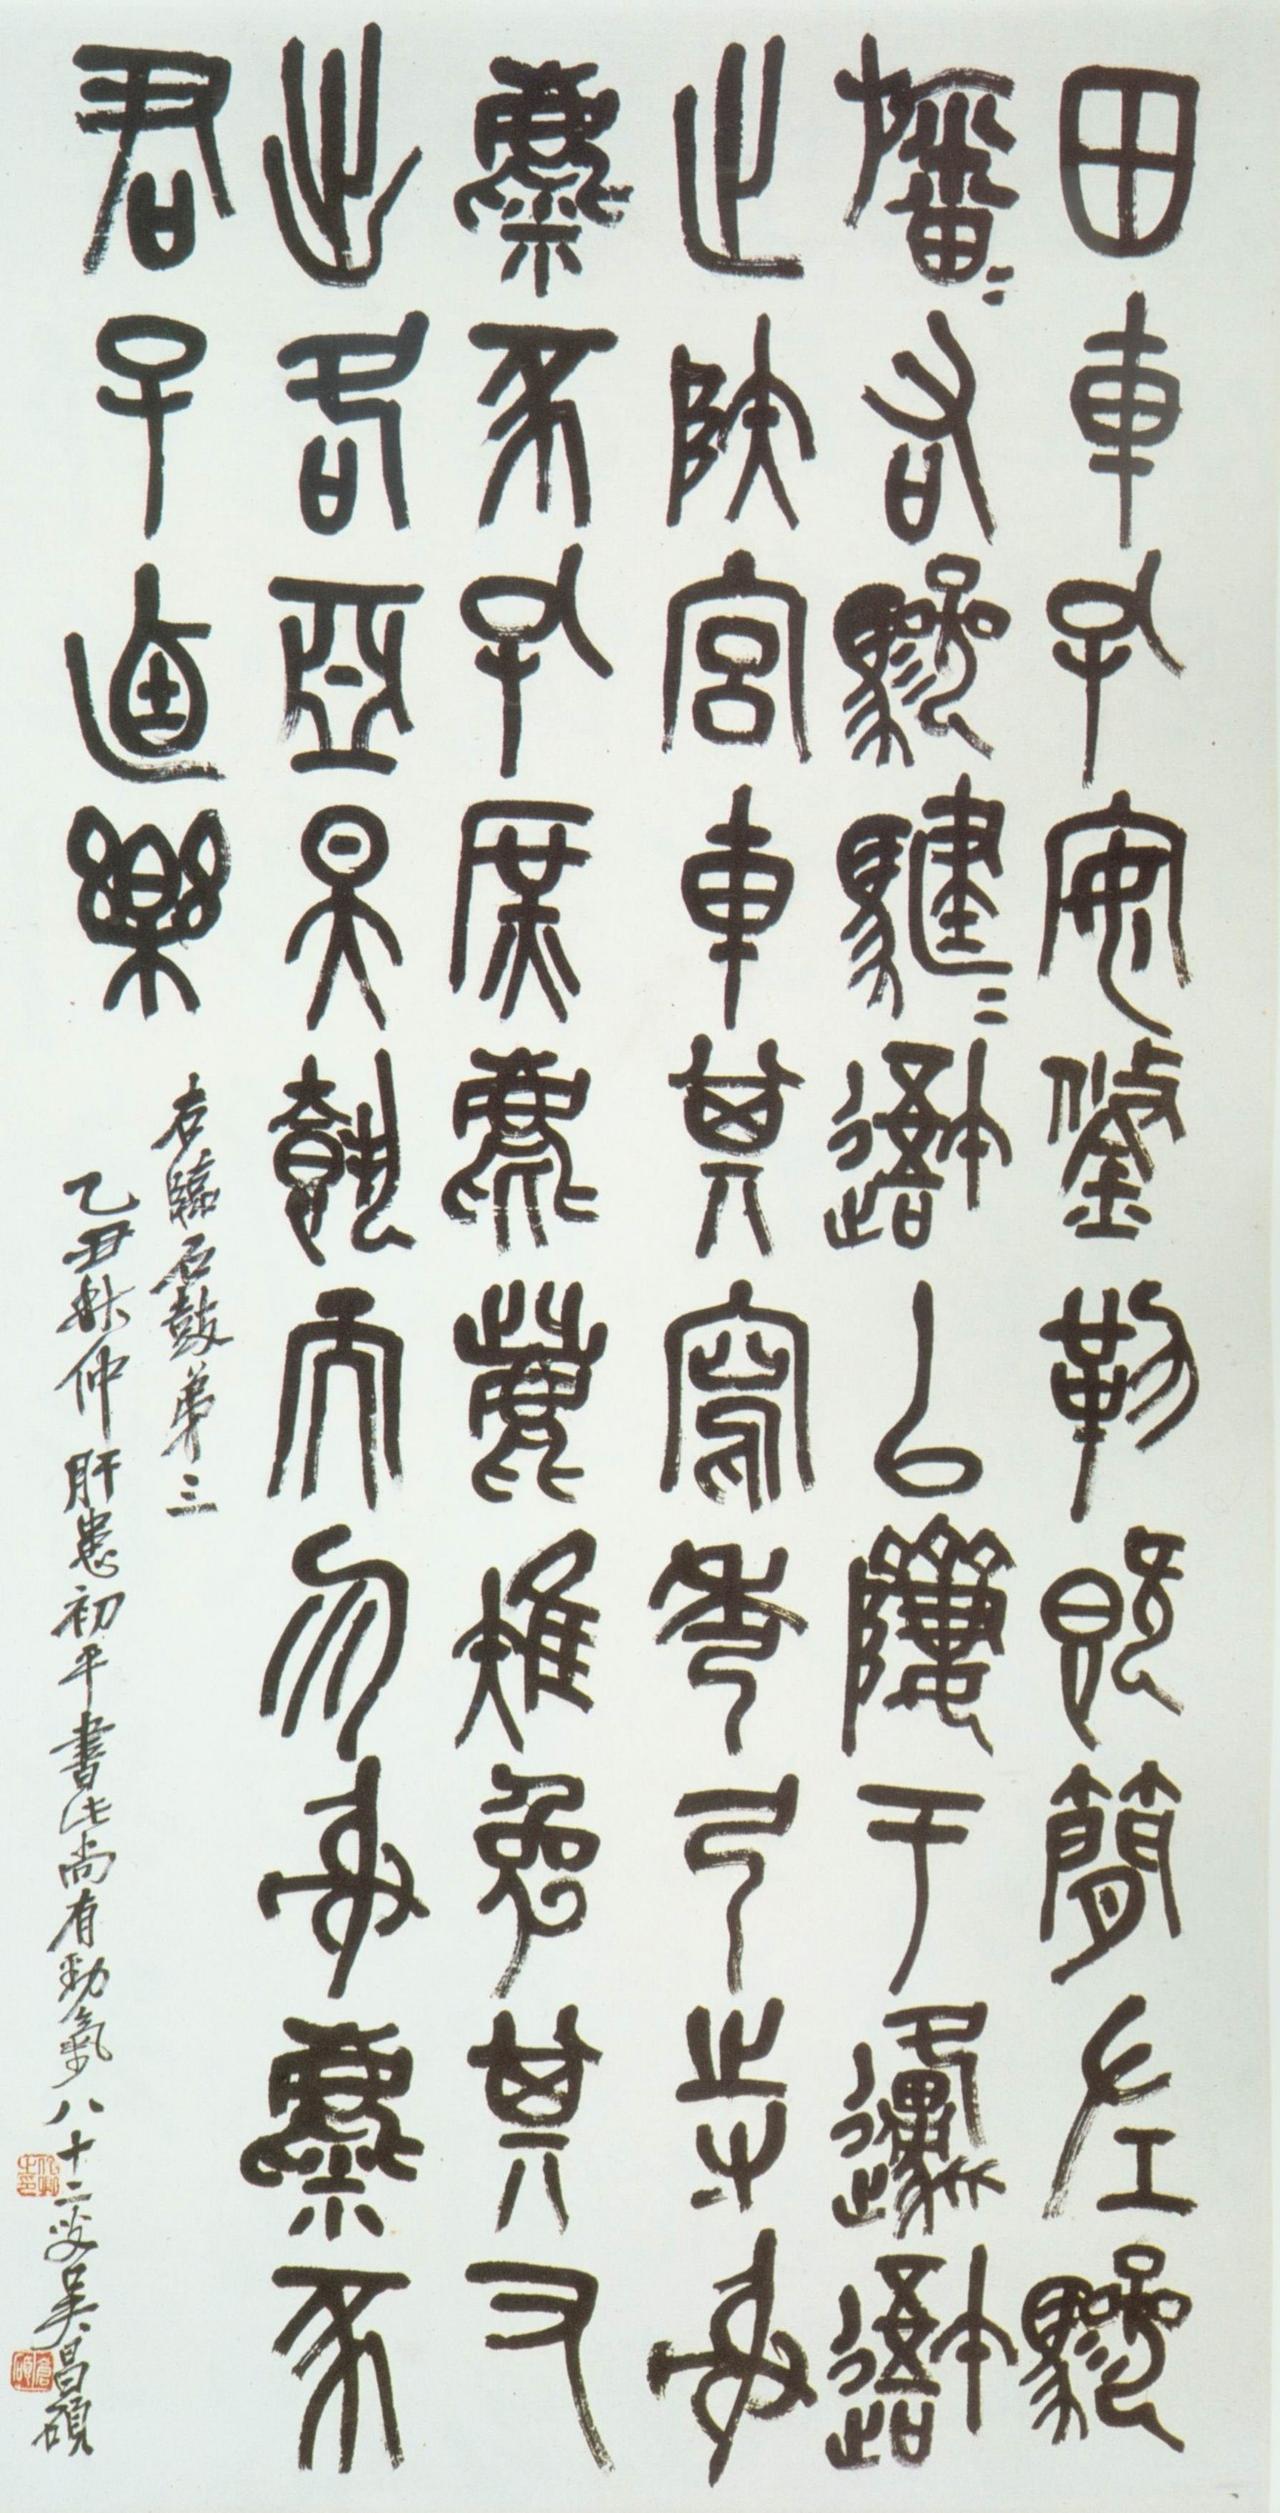 田車孔安鋚勒既簡左驂
旛〻右驂騝〻以隮于邍
止陝宮車其寫秀弓寺射
麋豕孔庶麀鹿雉兔其又
出各亞昊執而勿射麋豕
君子逌樂
右臨石鼓弟三
乙丑秋仲肝患初平書此尚有勁氣八十二叟吳昌碩